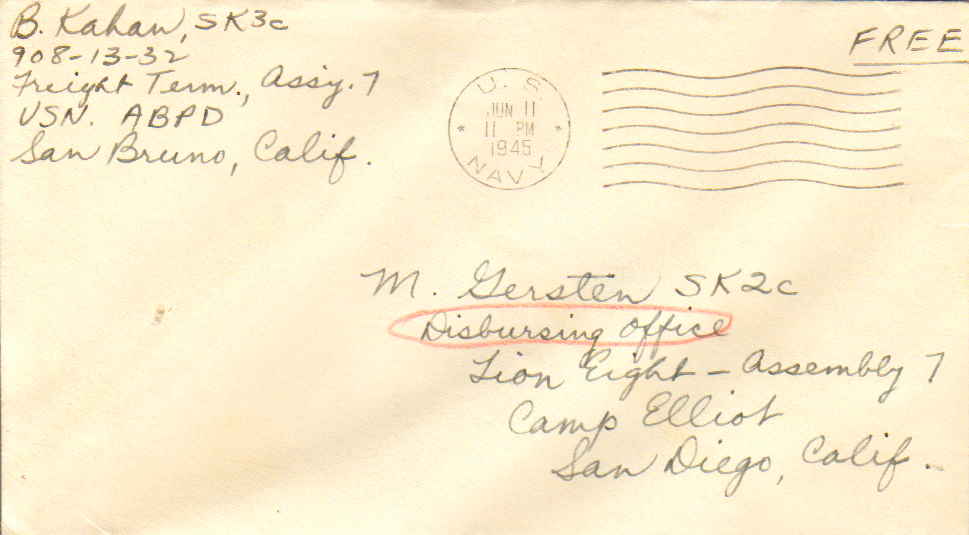 B. Kahan, SK3c
908-13-32
Freight Term., Assy. 7
USN. ABPD
San Bruno, Calif.
FREE
U. S.
JUN 11
11 PM
1945
NAVY
M. Gersten SK2c
Disbursing Office
Lion Eight - Assembly 7
Camp Elliot
San Diego, Calif.